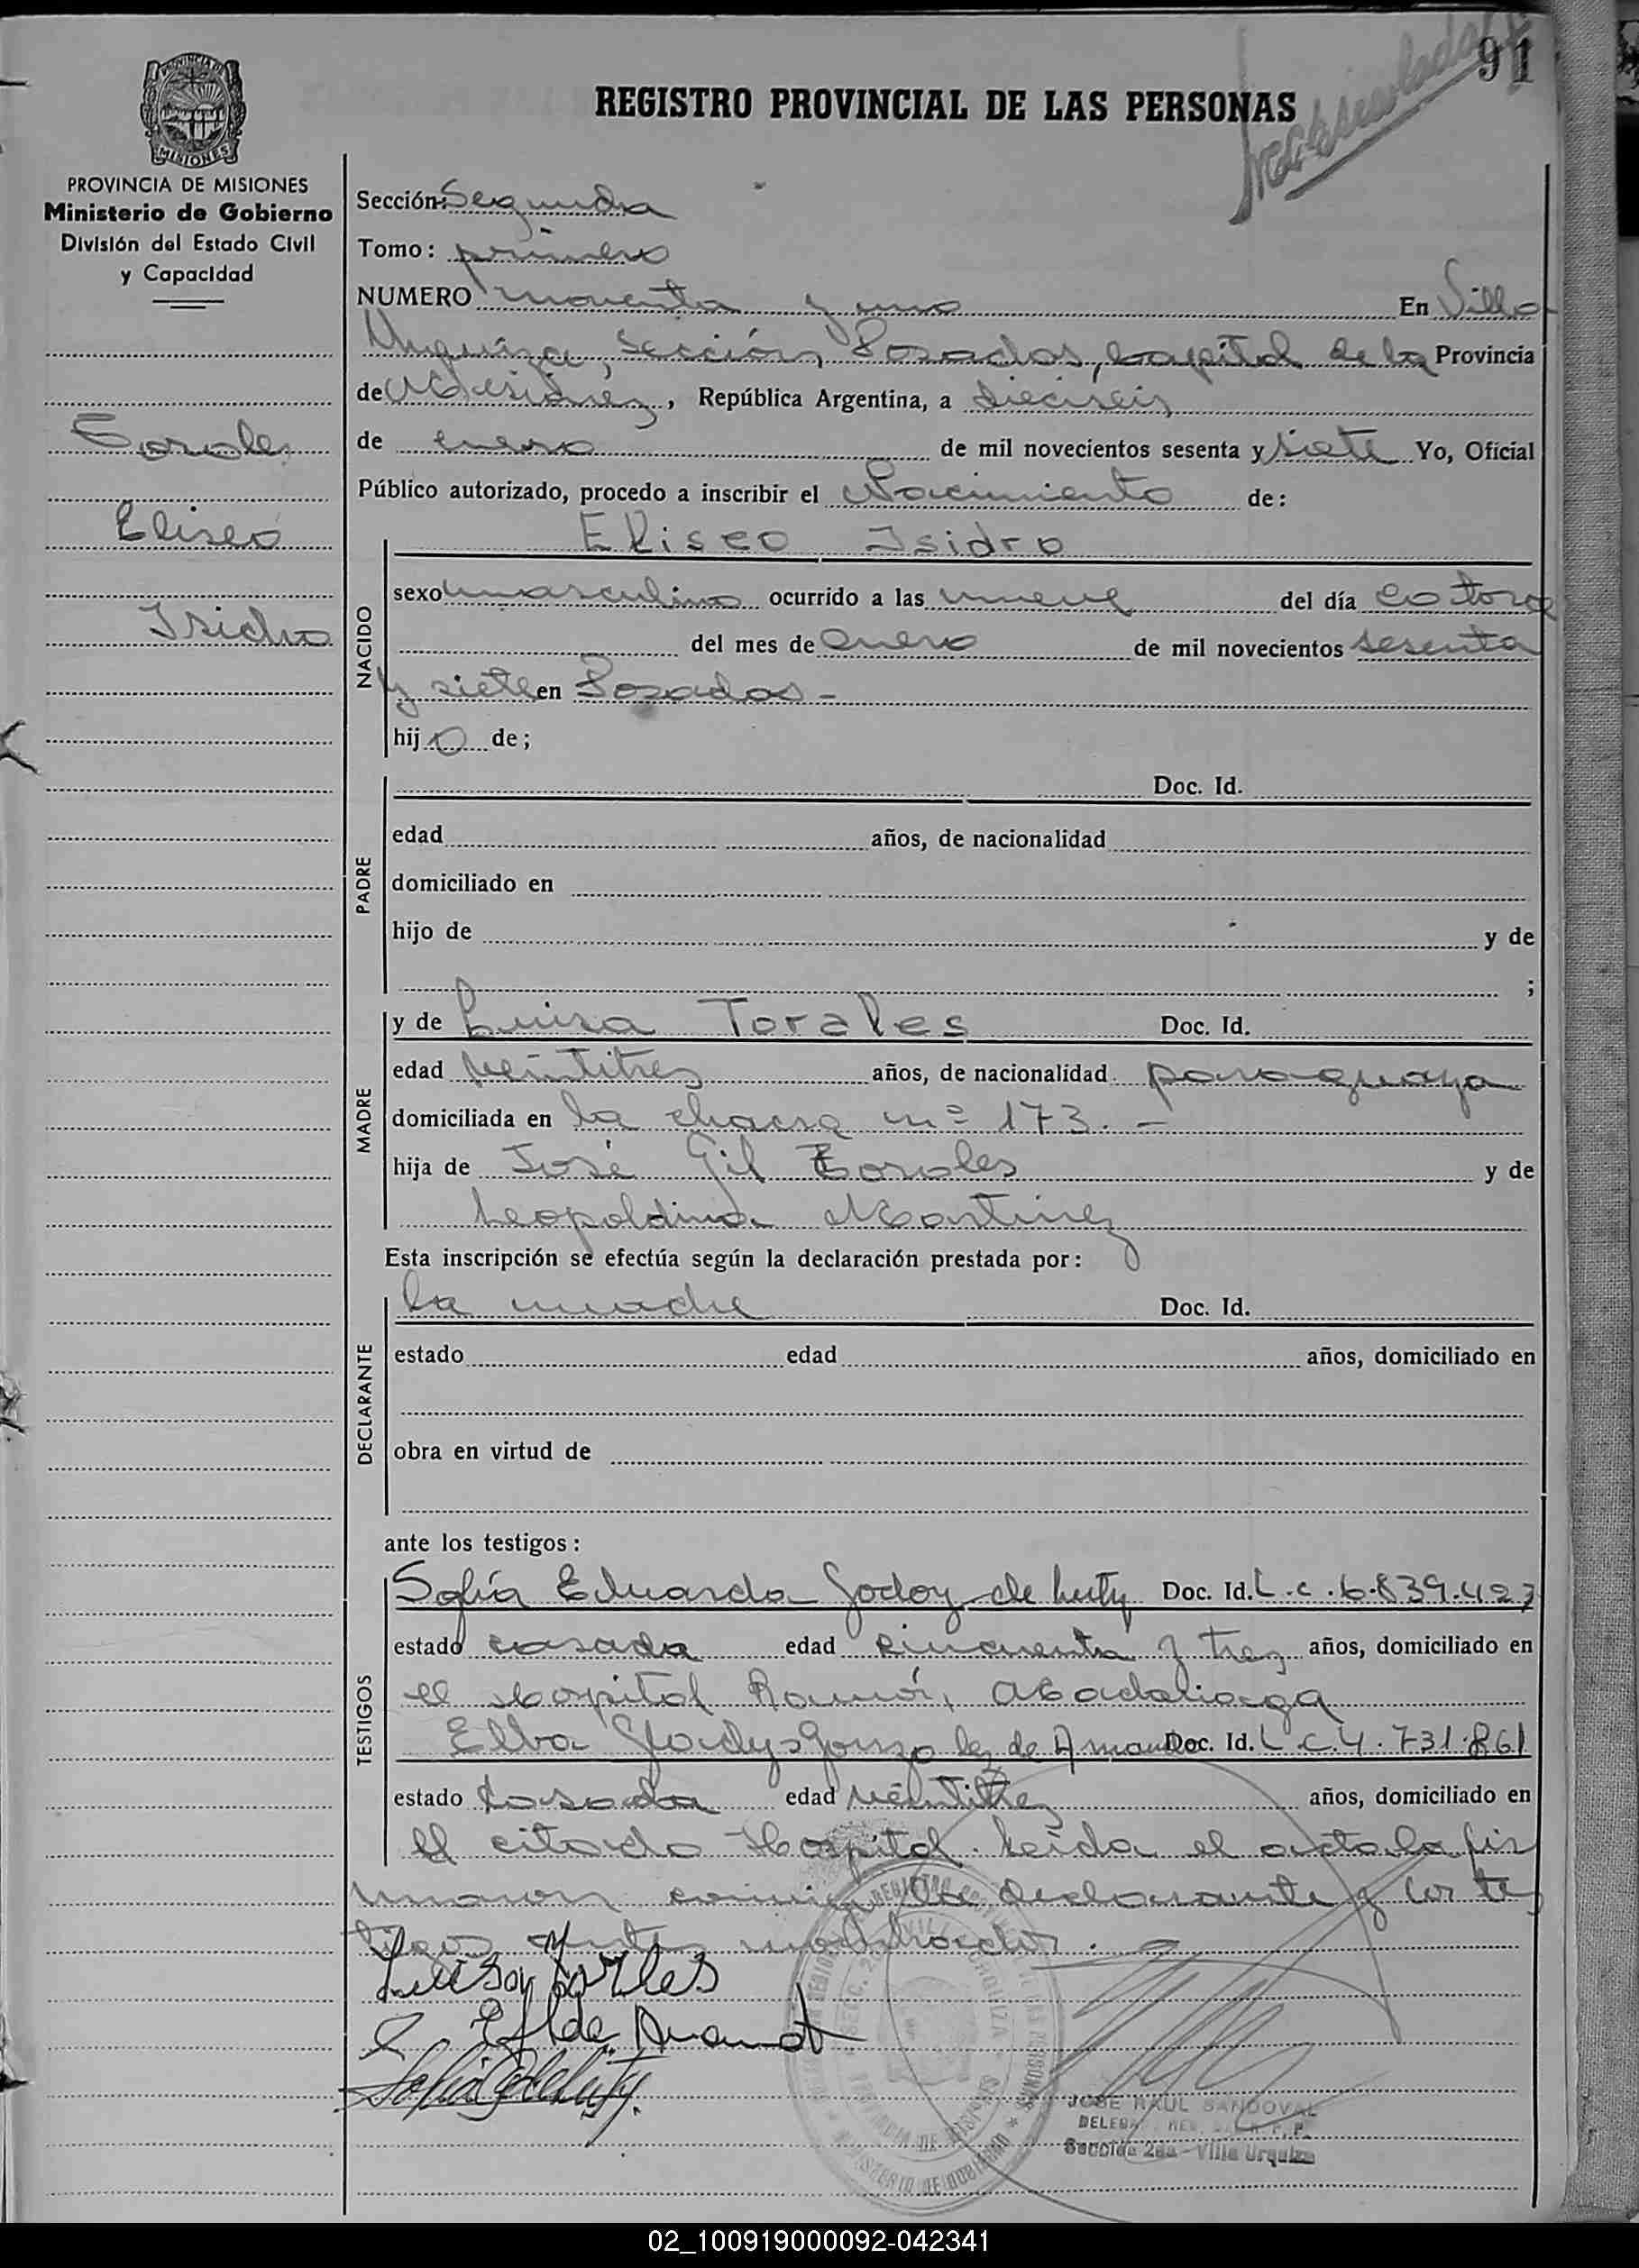 91
Matriculado
REGISTRO PROVINCIAL DE LAS PERSONAS
PROVINCIA DE MISIONES
Ministerio de Gobierno
División del Estado Civil
y Capacidad
Torales
Eliseo
Isidro
Sección: Segunda
Tomo: primero
NUMERO noventa y uno En Villa
Urquiza, Sección, Posadas, capital de la Provincia
de Misiones, República Argentina, a dieciseis
de enero de mil novecientos sesenta y siete Yo, Oficial
Público autorizado, procedo a inscribir el Nacimiento de:
NACIDO
Eliseo Isidro
sexo masculino ocurrido a las nueve del día catorce
del mes de enero de mil novecientos sesenta
y siete en Posadas -
hijo de;
PADRE
Doc. Id.
edad años, de nacionalidad
domiciliado en
hijo de y de
;
MADRE
y de Luisa Torales Doc. Id.
edad veintitres años, de nacionalidad paraguaya
domiciliada en la chacra nº 173. -
hija de José Gil Torales y de
Leopoldina Martinez
Esta inscripción se efectúa según la declaración prestada por:
DECLARANTE
la madre Doc. Id.
estado edad años, domiciliado en
obra en virtud de
ante los testigos:
TESTIGOS
Sofía Eduarda Godoy de Doc. Id. L.C. 6.839.427
estado casada edad cincuenta y tres años, domiciliado en
el Hospital Ramón Madariaga
Elba Gladys Gonzalez de Doc. Id. L C. 4.731.861
estado casada edad veintitres años, domiciliado en
el citado Hospital. Leída el acta la fir
maron conmigo la declarante y los tes
tigos antes nombrados.
Luisa Torales
Sofia G de
JOSE RAUL SANDOVAL
Sección 2da - Villa Urquiza
02_100919000092-042341